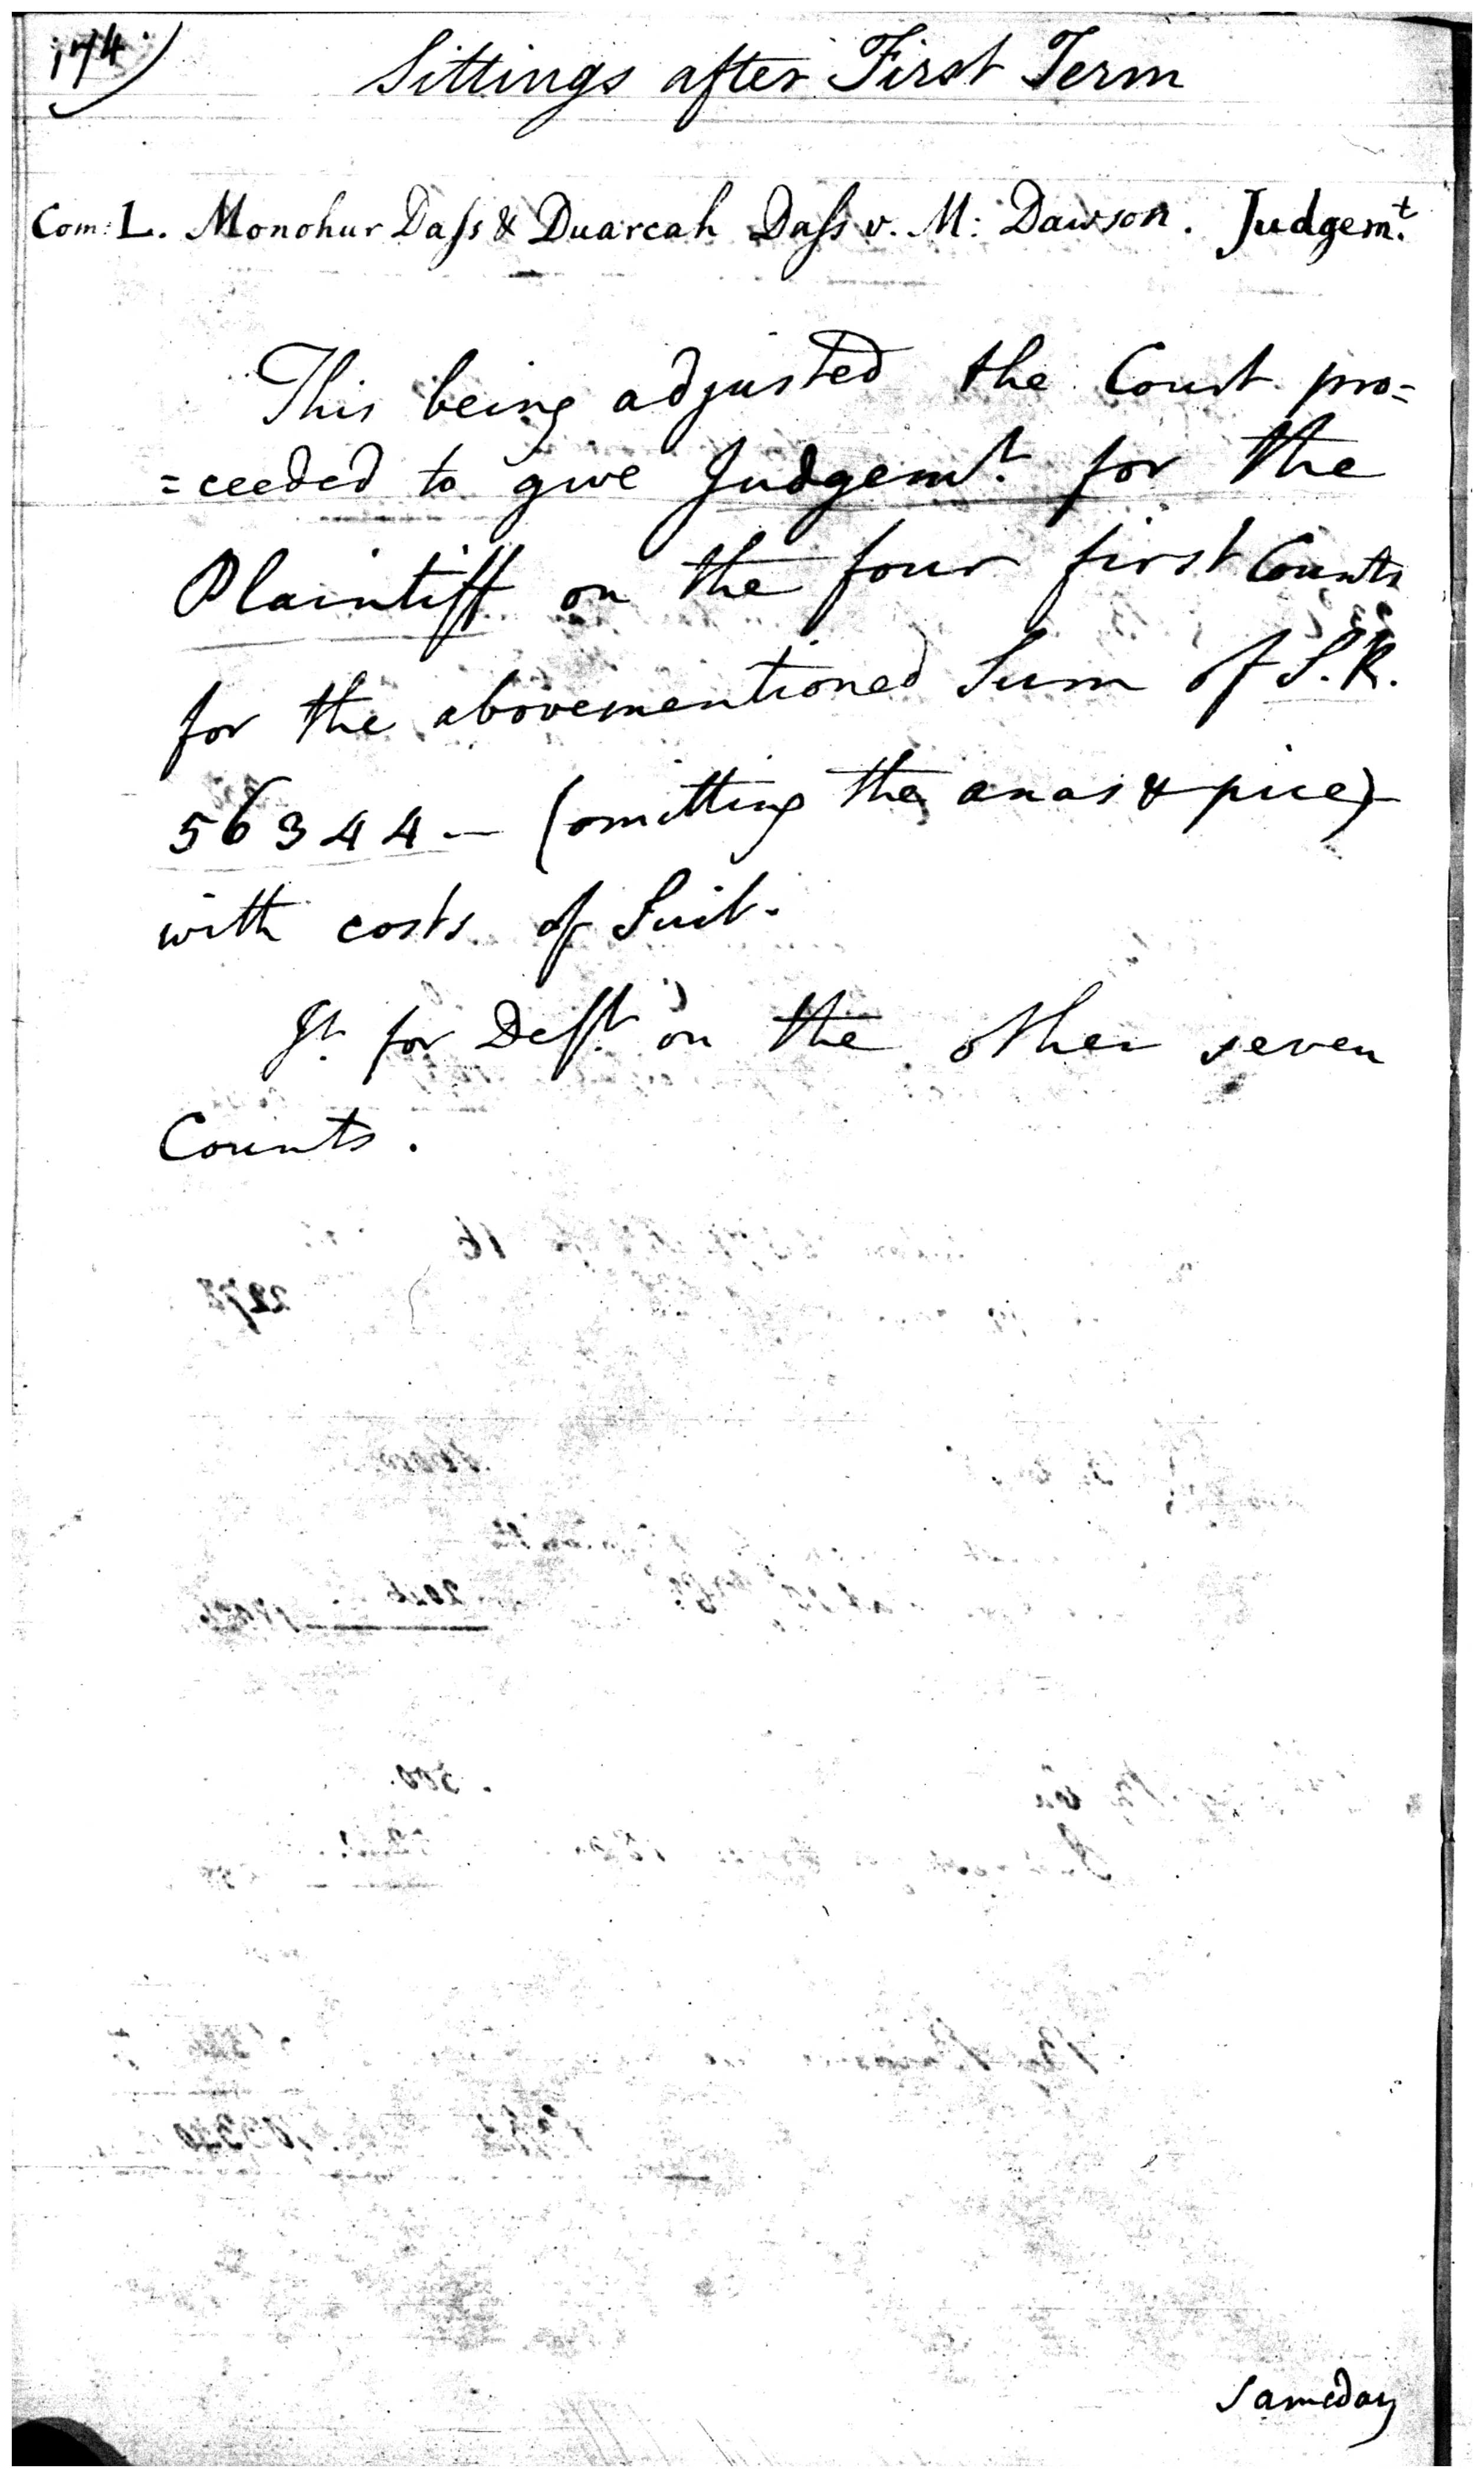 174)
Sittings after First Term
Com: L. Monohur Daſs & Duarcah Daſs v. M: Dawson. Judgemt.
This being adjusted the Court pro=
=ceeded to give Judgemt. for the
Plaintiff on the four first Counts
for the abovementioned Sum of S.R.
56344— (omitting the anas & pice)
with costs of Suit.
Jt. for Deft. on the other seven
Counts.
Sameday